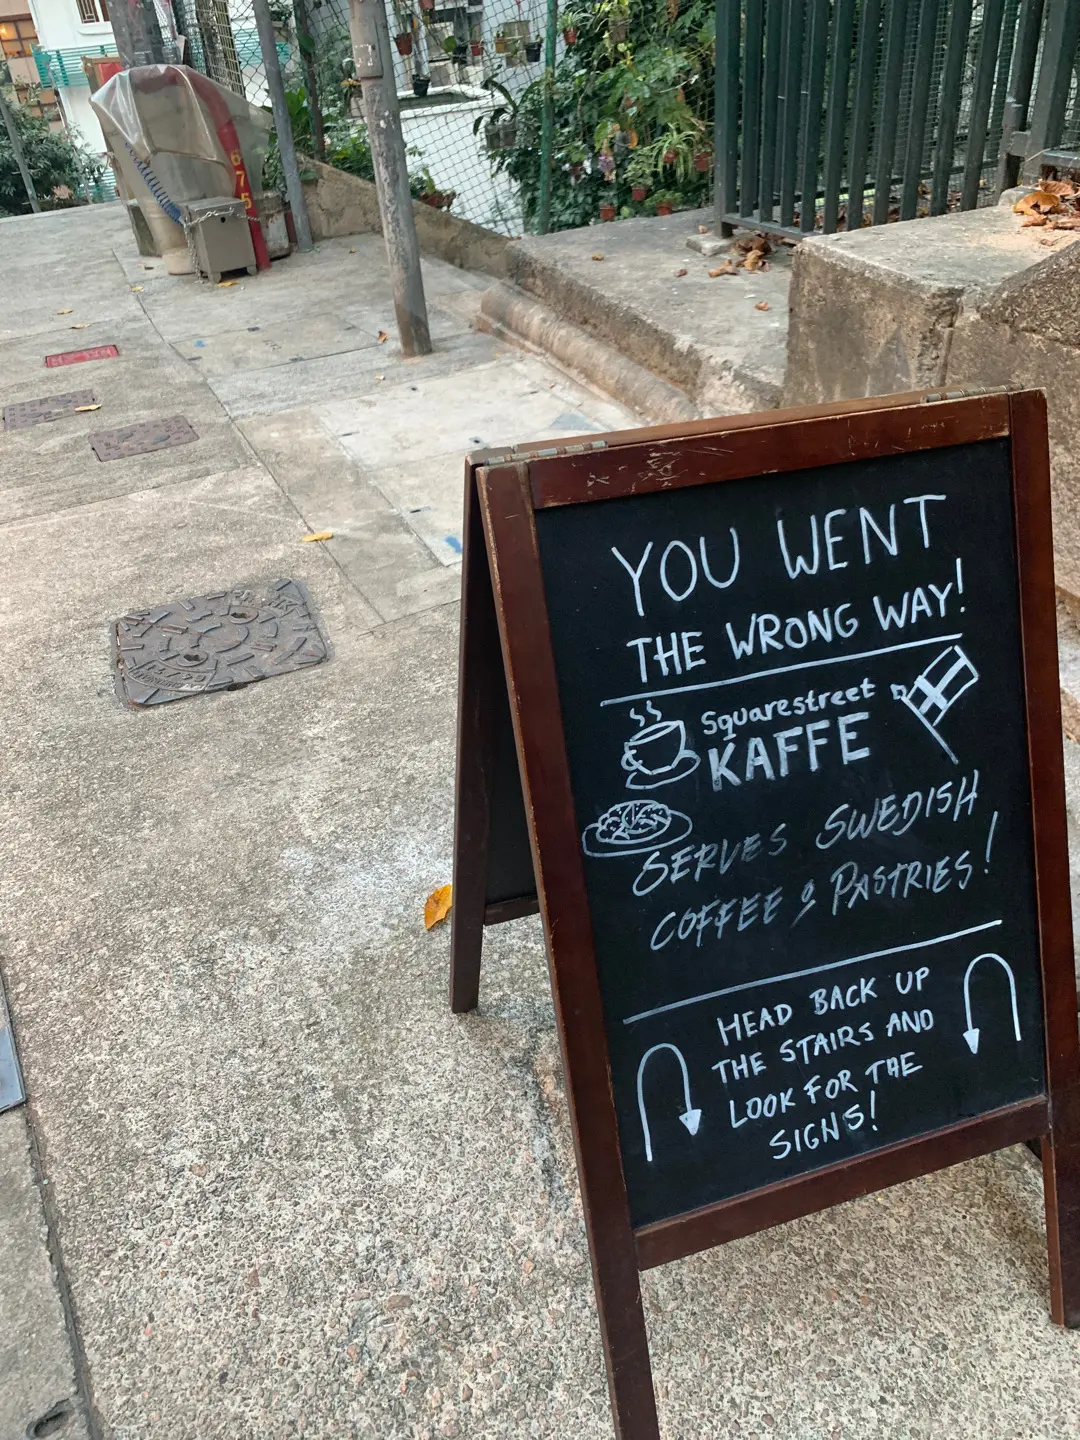 YOU WENT
THE WRONG WAY!
Squarestreet
KAFFE
SERVES SWEDISH
COFFEE & PASTRIES!
HEAD BACK UP
THE STAIRS AND
LOOK FOR THE
SIGNS!